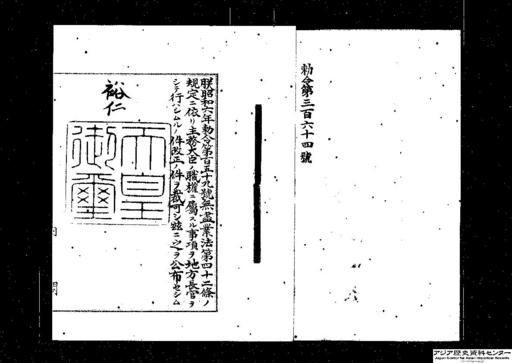 勅令第三百六十四號
朕昭和六年勅令第百五十九號無盡業法第四十二條ノ
規定ニ依リ主務大臣ノ職權ニ屬スル事項ヲ地方長官ヲ
シテ行ハシムルノ件改正ノ件ヲ裁可シ玆ニ之ヲ公布セシム
裕仁
天皇
御璽
アジア歴史資料センター
Japan Center for Asian Historical Records